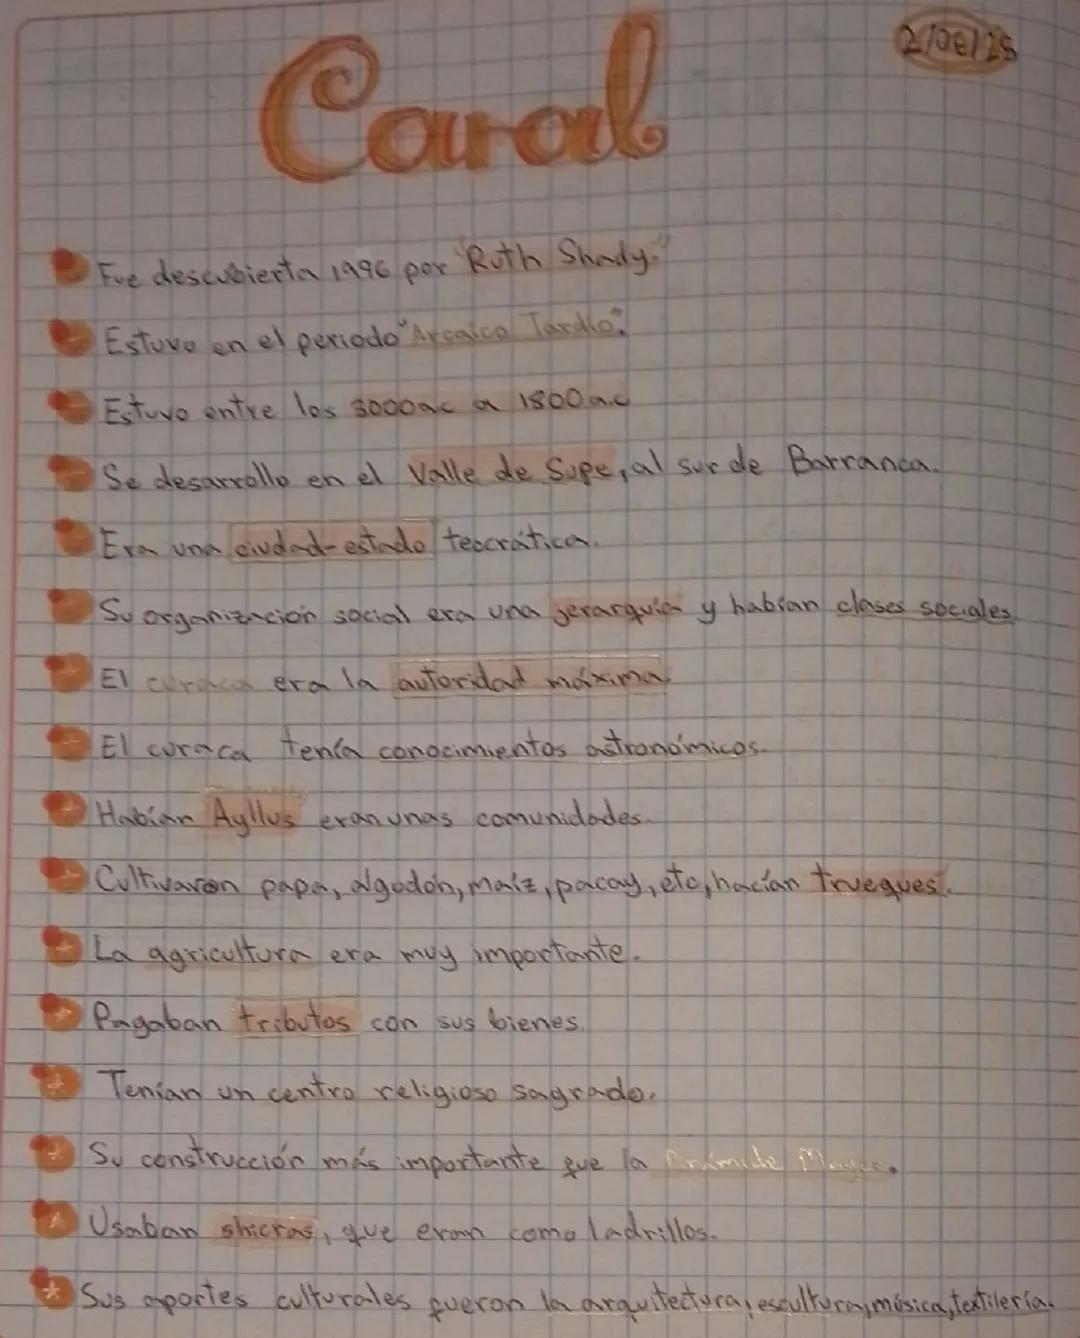 2/06/25
Caral
Fue descubierta 1996 por "Ruth Shady."
Estuvo en el periodo "Arcaico Tardío".
Estuvo entre los 3000ac a 1800a.c
Se desarrollo en el Valle de Supe, al sur de Barranca.
Era una ciudad-estado teocrática.
Su organización social era una jerarquía y habían clases sociales.
El curaca era la autoridad máxima.
El curaca tenía conocimientos astronómicos.
Habían Ayllus eran unas comunidades.
Cultivaron papa, algodón, maíz, pacay, etc, hacían trueques.
La agricultura era muy importante.
Pagaban tributos con sus bienes.
Tenían un centro religioso sagrado.
Su construcción más importante fue la Pirámide Mayor.
Usaban shicras, que eran como ladrillos.
Sus aportes culturales fueron la arquitectura, escultura, música, textilería.